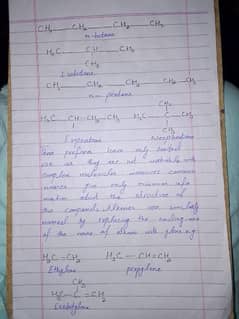 CH₃ CH₂ CH₂ CH₃
n-butane
H₃C CH CH₃
CH₃
Isobutane
CH₃ CH₂ CH₂ CH₂ CH₃
n-pentane
CH₃
H₃C CH-CH₂-CH₃ H₃C C CH₃
CH₃ CH₃
Isopentane Neopentane
have only limited
use as they are not workable with
complex molecules moreover common
names give only minimum infor
mation about the structure of
the compounds. Alkenes are similarly
named by replacing the ending-ane
of the name of alkane with
H₂C=CH₂ H₃C-CH=CH₂
Ethylene propylene
CH₃
H₃C-C=CH₂
Isobutylene